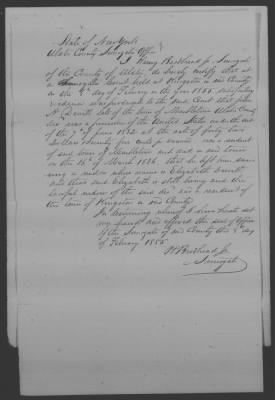 State of New York
Ulster County Surrogate Office
I Henry Brodhead Jr Surrogate
of the County of Ulster do hereby certify that at
a Surrogates Court held at Kingston in said County
on the day of February in the year 1855 satisfactory
evidence was produced to the said Court that John
A. Dewitt late of the town of Marbletown Ulster County
dec was a pensioner of the United States under the act
of the 7th of June 1832 at the rate of forty two
Dollars & seventy five cents per annum was a resident
of said town of Marbletown and died in said town
on the 15th of March 1836, that he left him surviv
ing a widow whose name is Elizabeth
and that said Elizabeth is still living and the
lawful widow of the said dec and a resident of
the town of Kingston in said County
In testimony whereof I have hereunto set
my hand and affixed the seal of Office
of the Surrogate of said County the day
of February 1855
H Brodhead Jr
Surrogate